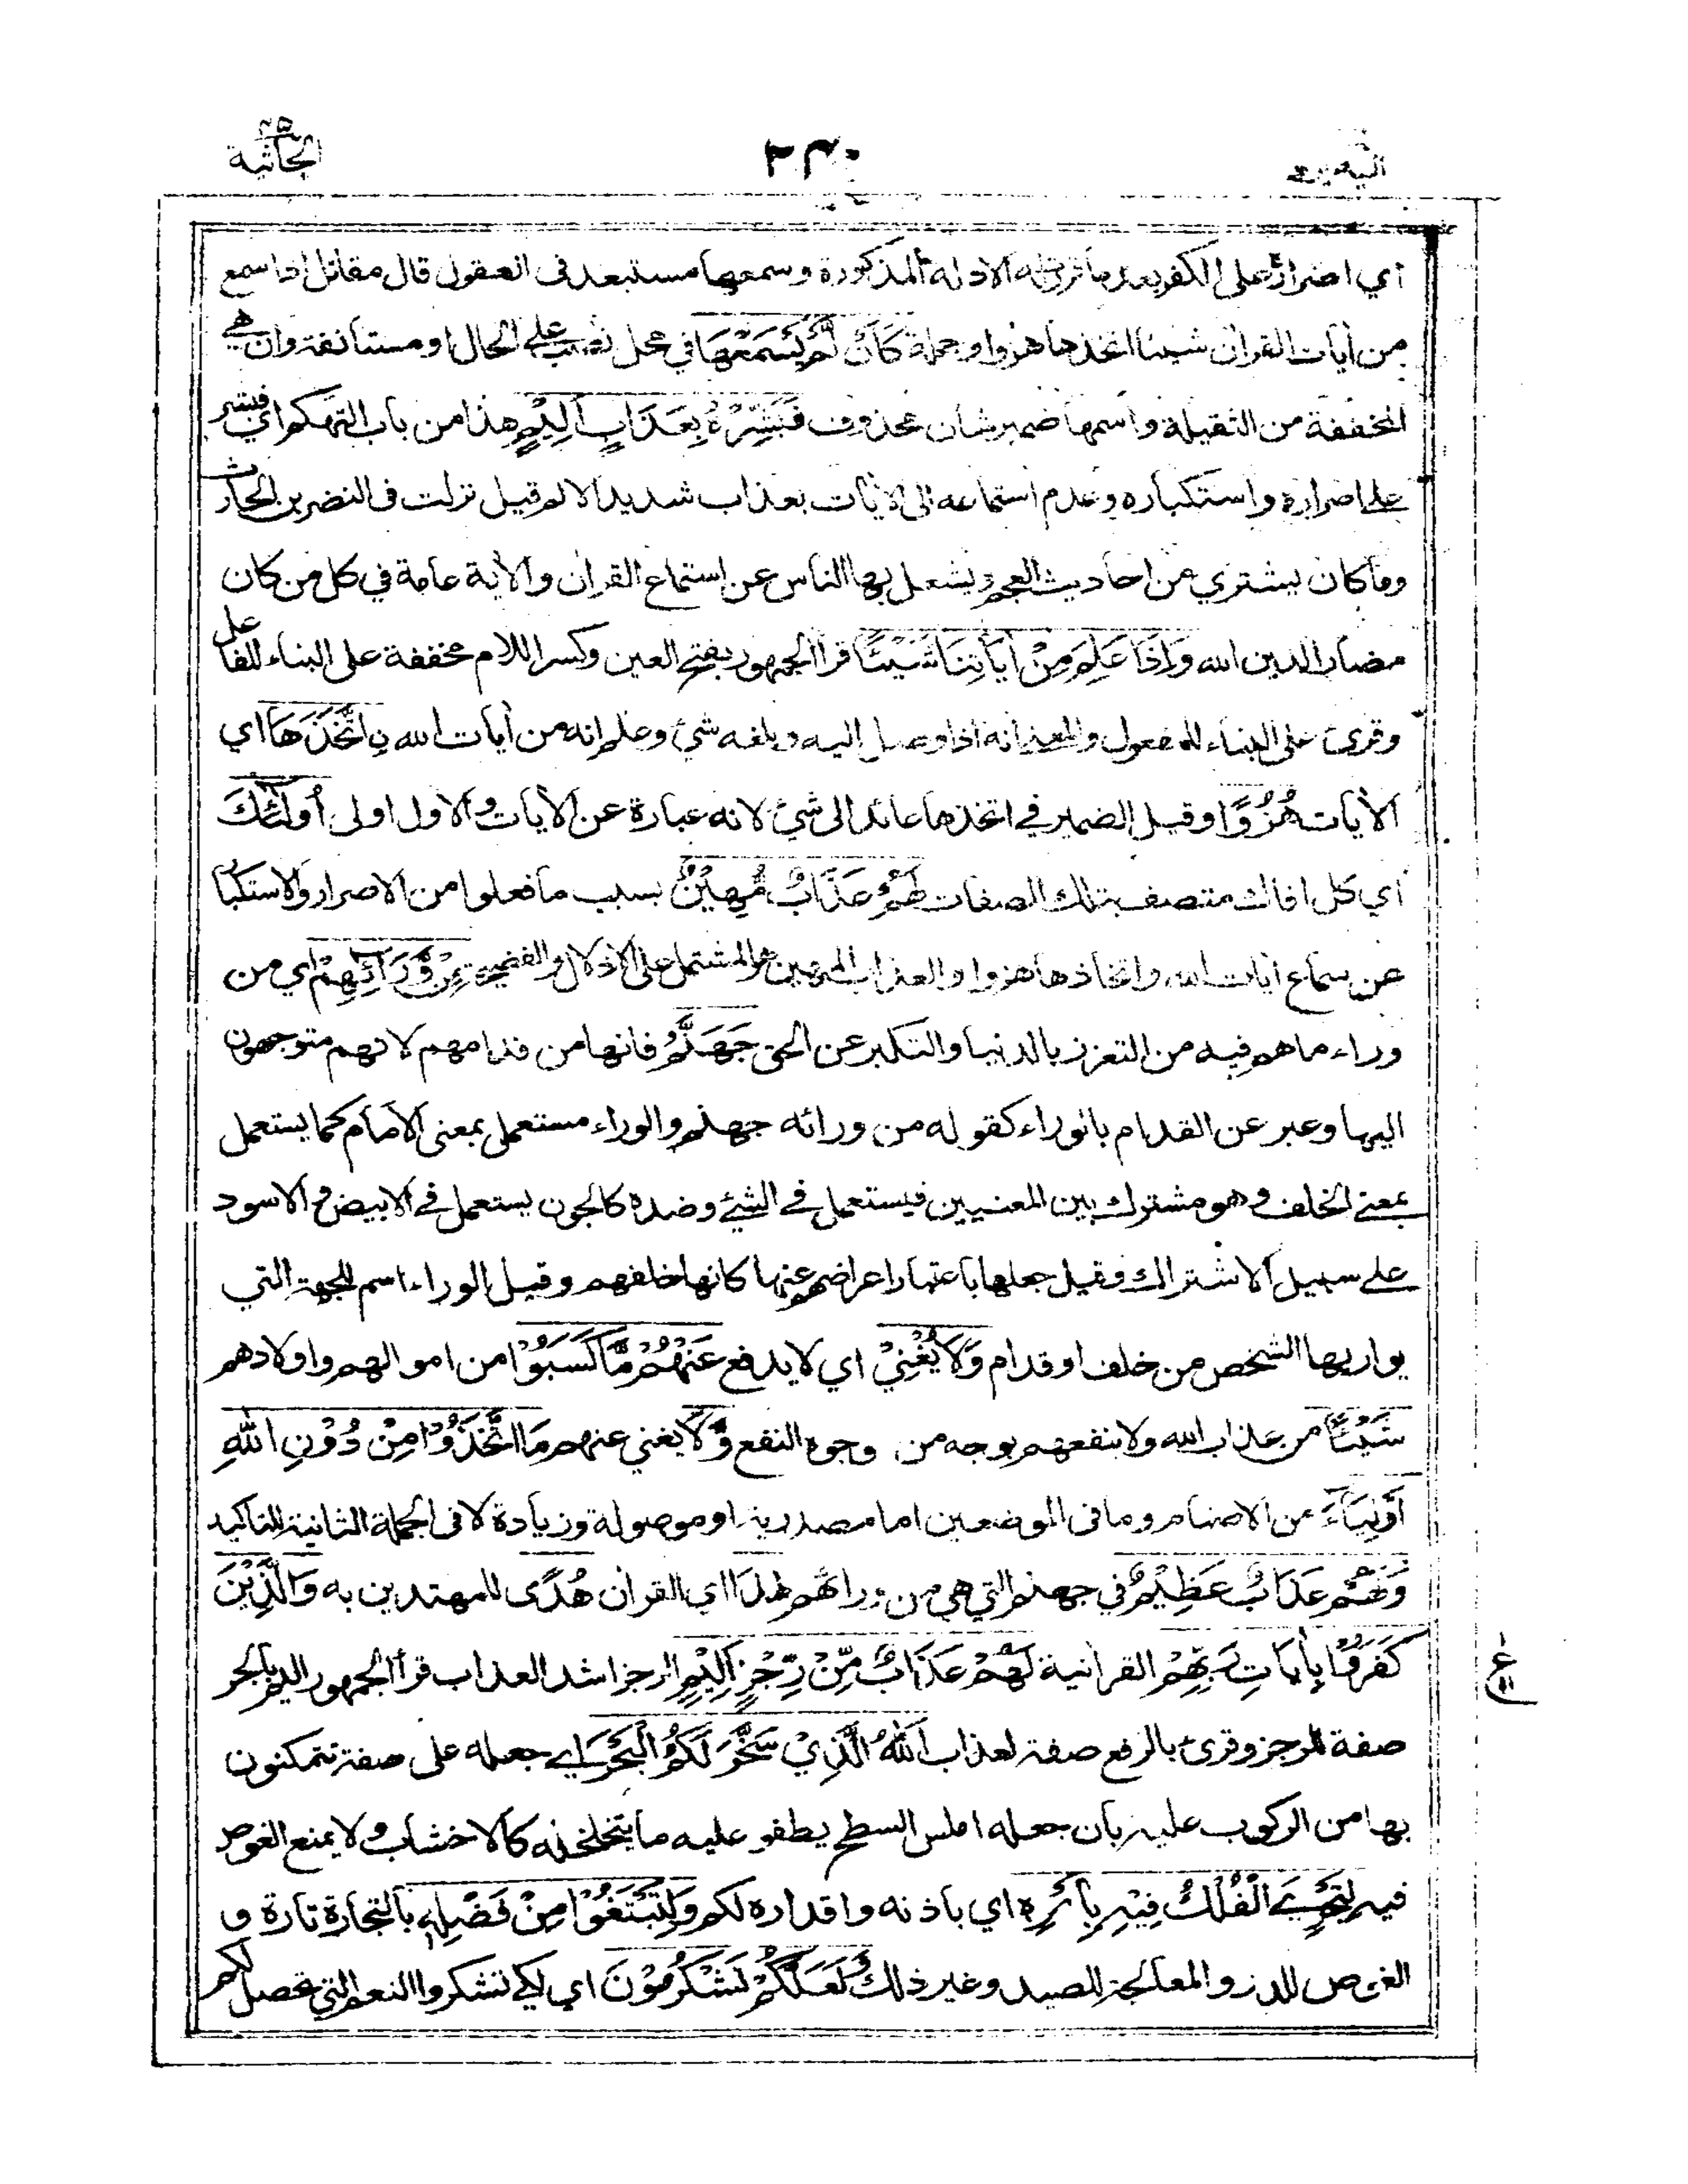 الجاثية ٤٥
٢٣٠
اليه يرد
اي اصراره على الكفر بعد ما قررت له الادلة المذكورة وسمعها مستبعد في العقول قال مقاتل اذا سمع
من أيات القرأن شيئا اتخذها هزوا وجملة كَأَنْ لَّمْ يَسْمَعْهَا في محل نصب على الحال او مستأنفة وان هي
المخففة من الثقيلة واسمها ضمير شان محذوف فَبَشِّرْهُ بِعَذَابٍ اَلِيْمٍ هذا من باب التهكم اي فبشره
على اصراره واستكباره وعدم استماعه الى الأيات بعذاب شديد الالم قيل نزلت في النضر بن الحارث
وما كان يشتري من احاديث العجم ويشغل بها الناس عن استماع القرأن والأية عامة في كل من كان
مضار الدين الله وَاِذَا عَلِمَ مِنْ اٰيَاتِنَا شَيْئًا قرأ الجمهور بفتح العين وكسر اللام مخففة على البناء للفاعل
وقرئ على البناء للمفعول والمعنى انه اذا وصل اليه وبلغه شئ وعلم انه من أيات الله اِتَّخَذَهَا اي
الأيات هُزُوًا وقيل الضمير في اتخذها عائد الى شئ لانه عبارة عن الأيات والاول اولى اُولٰٓئِكَ
اي كل افاك متصف بتلك الصفات لَهُمْ عَذَابٌ مُّهِيْنٌ بسبب ما فعلوا من الاصرار والاستكبار
عن سماع أيات الله واتخاذها هزوا والعذاب المهين هو المشتمل على الاذلال والفضيحة مِنْ وَّرَآئِهِمْ اي من
وراء ما هم فيه من التعزز بالدنيا والتكبر عن الحق جَهَنَّمُ فانها من قدامهم لانهم متوجهون
اليها وعبر عن القدام بالوراء كقوله من ورائه جهنم والوراء مستعمل بمعنى الأمام كما يستعمل
بمعنى الخلف وهو مشترك بين المعنيين فيستعمل في الشئ وضده كالجون يستعمل في الابيض والاسود
على سبيل الاشتراك وقيل جعلها باعتبار اعراضهم عنها كانها خلفهم وقيل الوراء اسم للجهة التي
يواريها الشخص من خلف او قدام وَلَا يُغْنِيْ اي لا يدفع عَنْهُمْ مَّا كَسَبُوْا من اموالهم واولادهم
شَيْئًا من عذاب الله ولا ينفعهم بوجه من وجوه النفع وَّلَا يغني عنهم مَا اتَّخَذُوْا مِنْ دُوْنِ اللّٰهِ
اَوْلِيَآءَ من الاصنام وما في الموضعين اما مصدرية او موصولة وزيادة لا في الجملة الثانية للتاكيد
وَلَهُمْ عَذَابٌ عَظِيْمٌ في جهنم التي هي من ورائهم هٰذَا اي القرأن هُدًى للمهتدين به وَالَّذِيْنَ
كَفَرُوْا بِاٰيَاتِ رَبِّهِمْ القرأنية لَهُمْ عَذَابٌ مِّنْ رِّجْزٍ اَلِيْمٍ الرجز اشد العذاب قرأ الجمهور اليم بالجر
صفة للرجز وقرئ بالرفع صفة لعذاب اَللّٰهُ الَّذِيْ سَخَّرَ لَكُمُ الْبَحْرَ اي جعله على صفة تتمكنون
بها من الركوب عليه بان جعله املس السطح يطفو عليه ما يتخلخله كالاخشاب ولا يمنع الغوص
فيه لِتَجْرِيَ الْفُلْكُ فِيْهِ بِاَمْرِهٖ اي باذنه واقداره لكم وَلِتَبْتَغُوْا مِنْ فَضْلِهٖ بالتجارة تارة و
الغوص للدر والمعالجة للصيد وغير ذلك وَلَعَلَّكُمْ تَشْكُرُوْنَ اي لكي تشكروا النعم التي تحصل لكم
ع